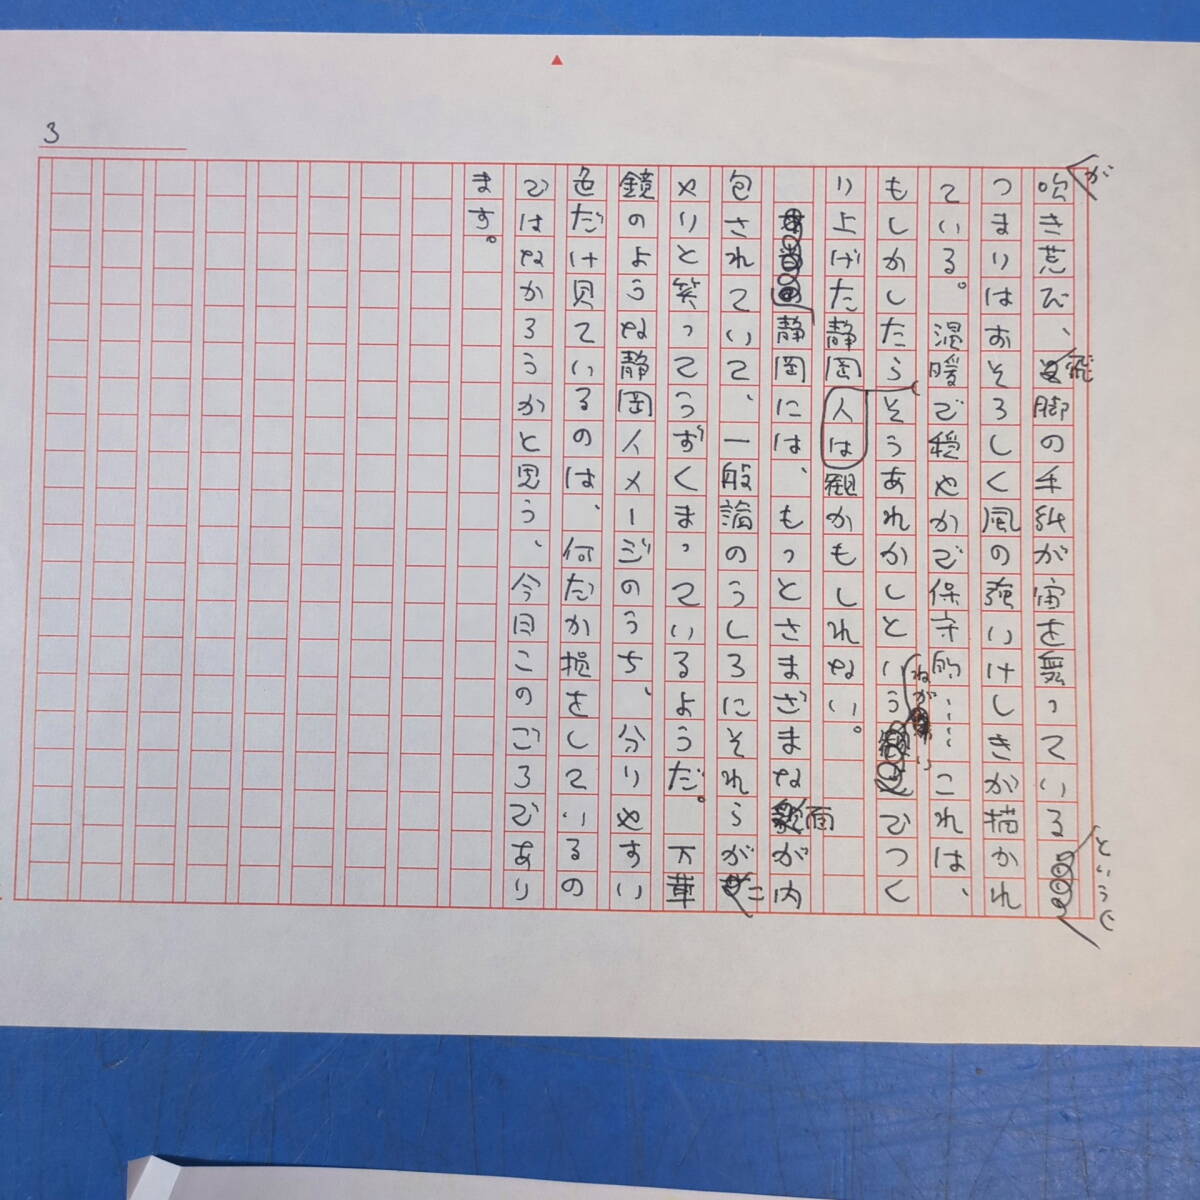 3
が吹き荒び、飛脚の手紙が宙を舞っているという、
つまりはおそろしく風の強いけしきが描かれ
ている。温暖で穏やかで保守的……これは、
もしかしたらそうあれかしというねがいでつく
り上げた静岡人は観かもしれない。
静岡には、もっとさまざまな面が内
包されていて、一般論のうしろにそれらがこ
やりと笑ってうずくまっているようだ。万華
鏡のような静岡人メージのうち、分りやすい
色だけ見ているのは、何だか損をしているの
ではなかろうかと思う、今日このごろであり
ます。